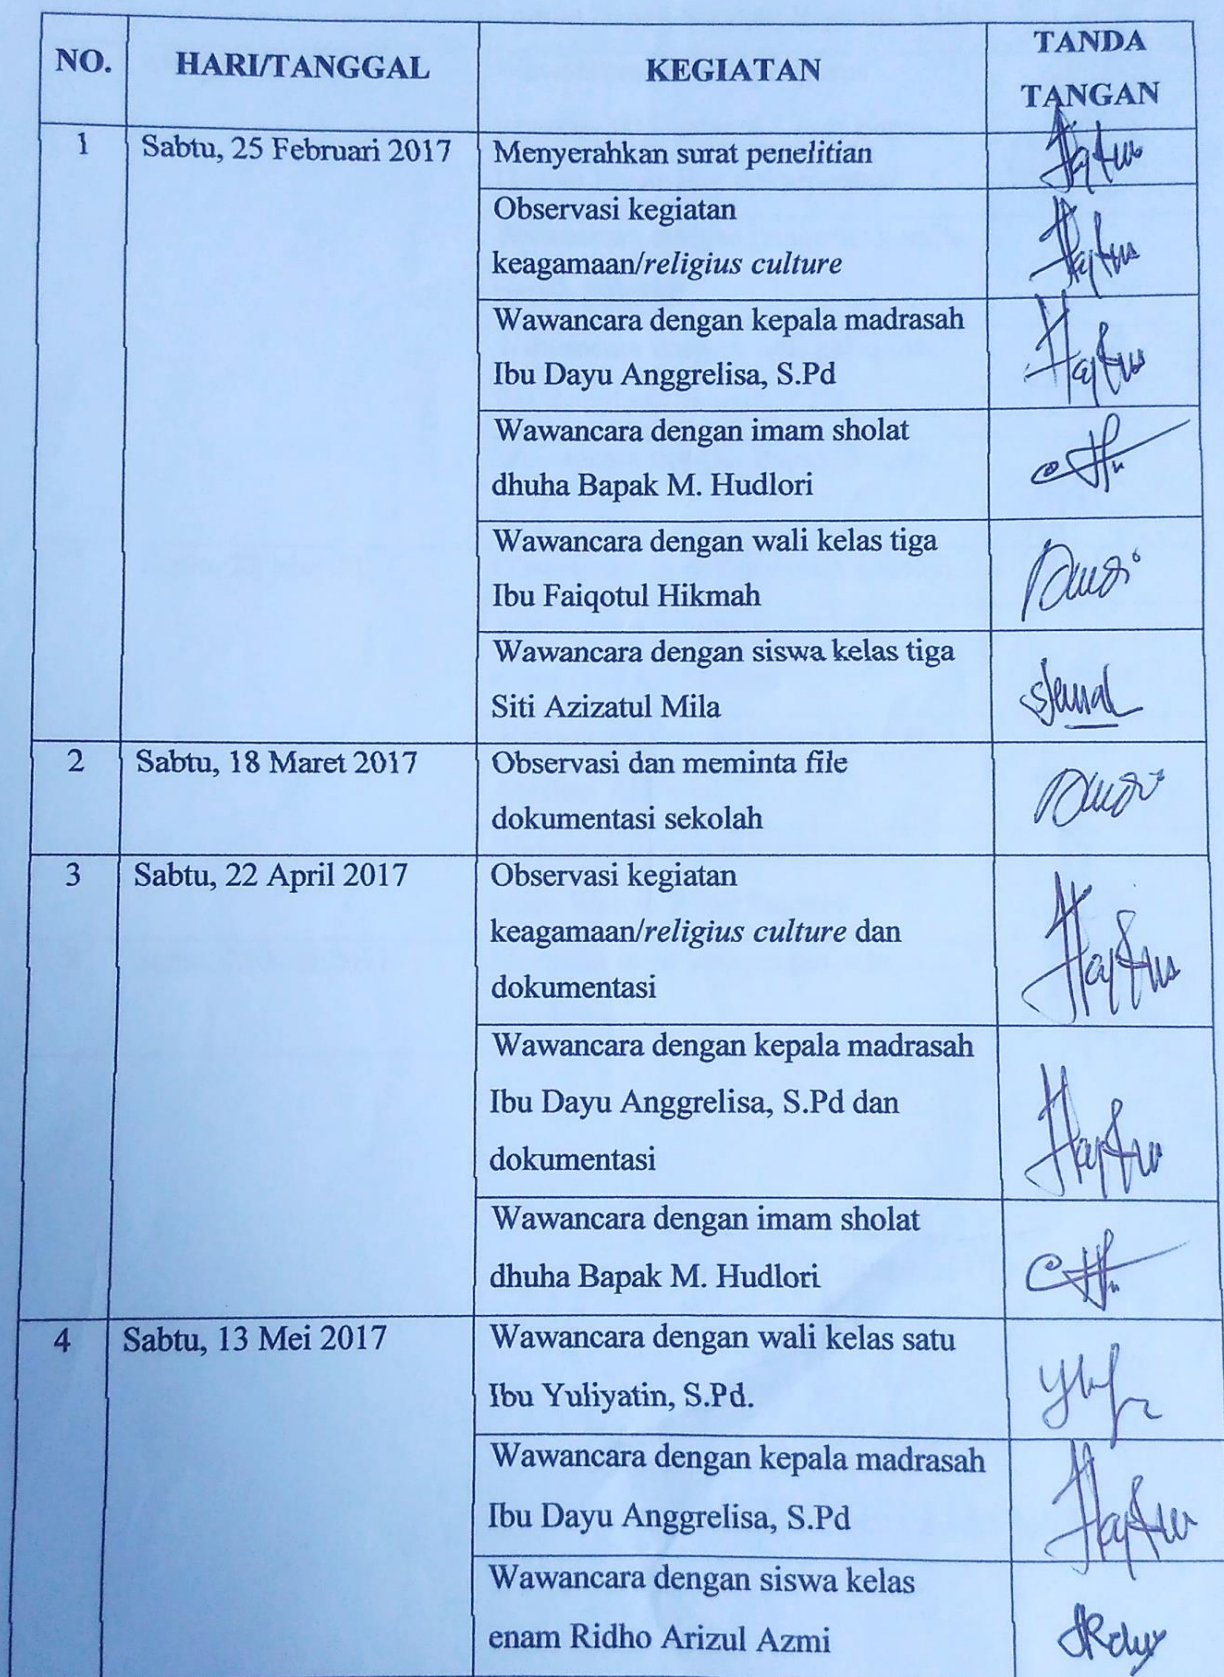 NO.
HARI/TANGGAL
KEGIATAN
TANDA
TANGAN
1
Sabtu, 25 Februari 2017
Menyerahkan surat penelitian
Observasi kegiatan
keagamaan/religius culture
Wawancara dengan kepala madrasah
Ibu Dayu Anggrelisa, S.Pd
Wawancara dengan imam sholat
dhuha Bapak M. Hudlori
Wawancara dengan wali kelas tiga
Ibu Faiqotul Hikmah
Wawancara dengan siswa kelas tiga
Siti Azizatul Mila
2
Sabtu, 18 Maret 2017
Observasi dan meminta file
dokumentasi sekolah
3
Sabtu, 22 April 2017
Observasi kegiatan
keagamaan/religius culture dan
dokumentasi
Wawancara dengan kepala madrasah
Ibu Dayu Anggrelisa, S.Pd dan
dokumentasi
Wawancara dengan imam sholat
dhuha Bapak M. Hudlori
4
Sabtu, 13 Mei 2017
Wawancara dengan wali kelas satu
Ibu Yuliyatin, S.Pd.
Wawancara dengan kepala madrasah
Ibu Dayu Anggrelisa, S.Pd
Wawancara dengan siswa kelas
enam Ridho Arizul Azmi